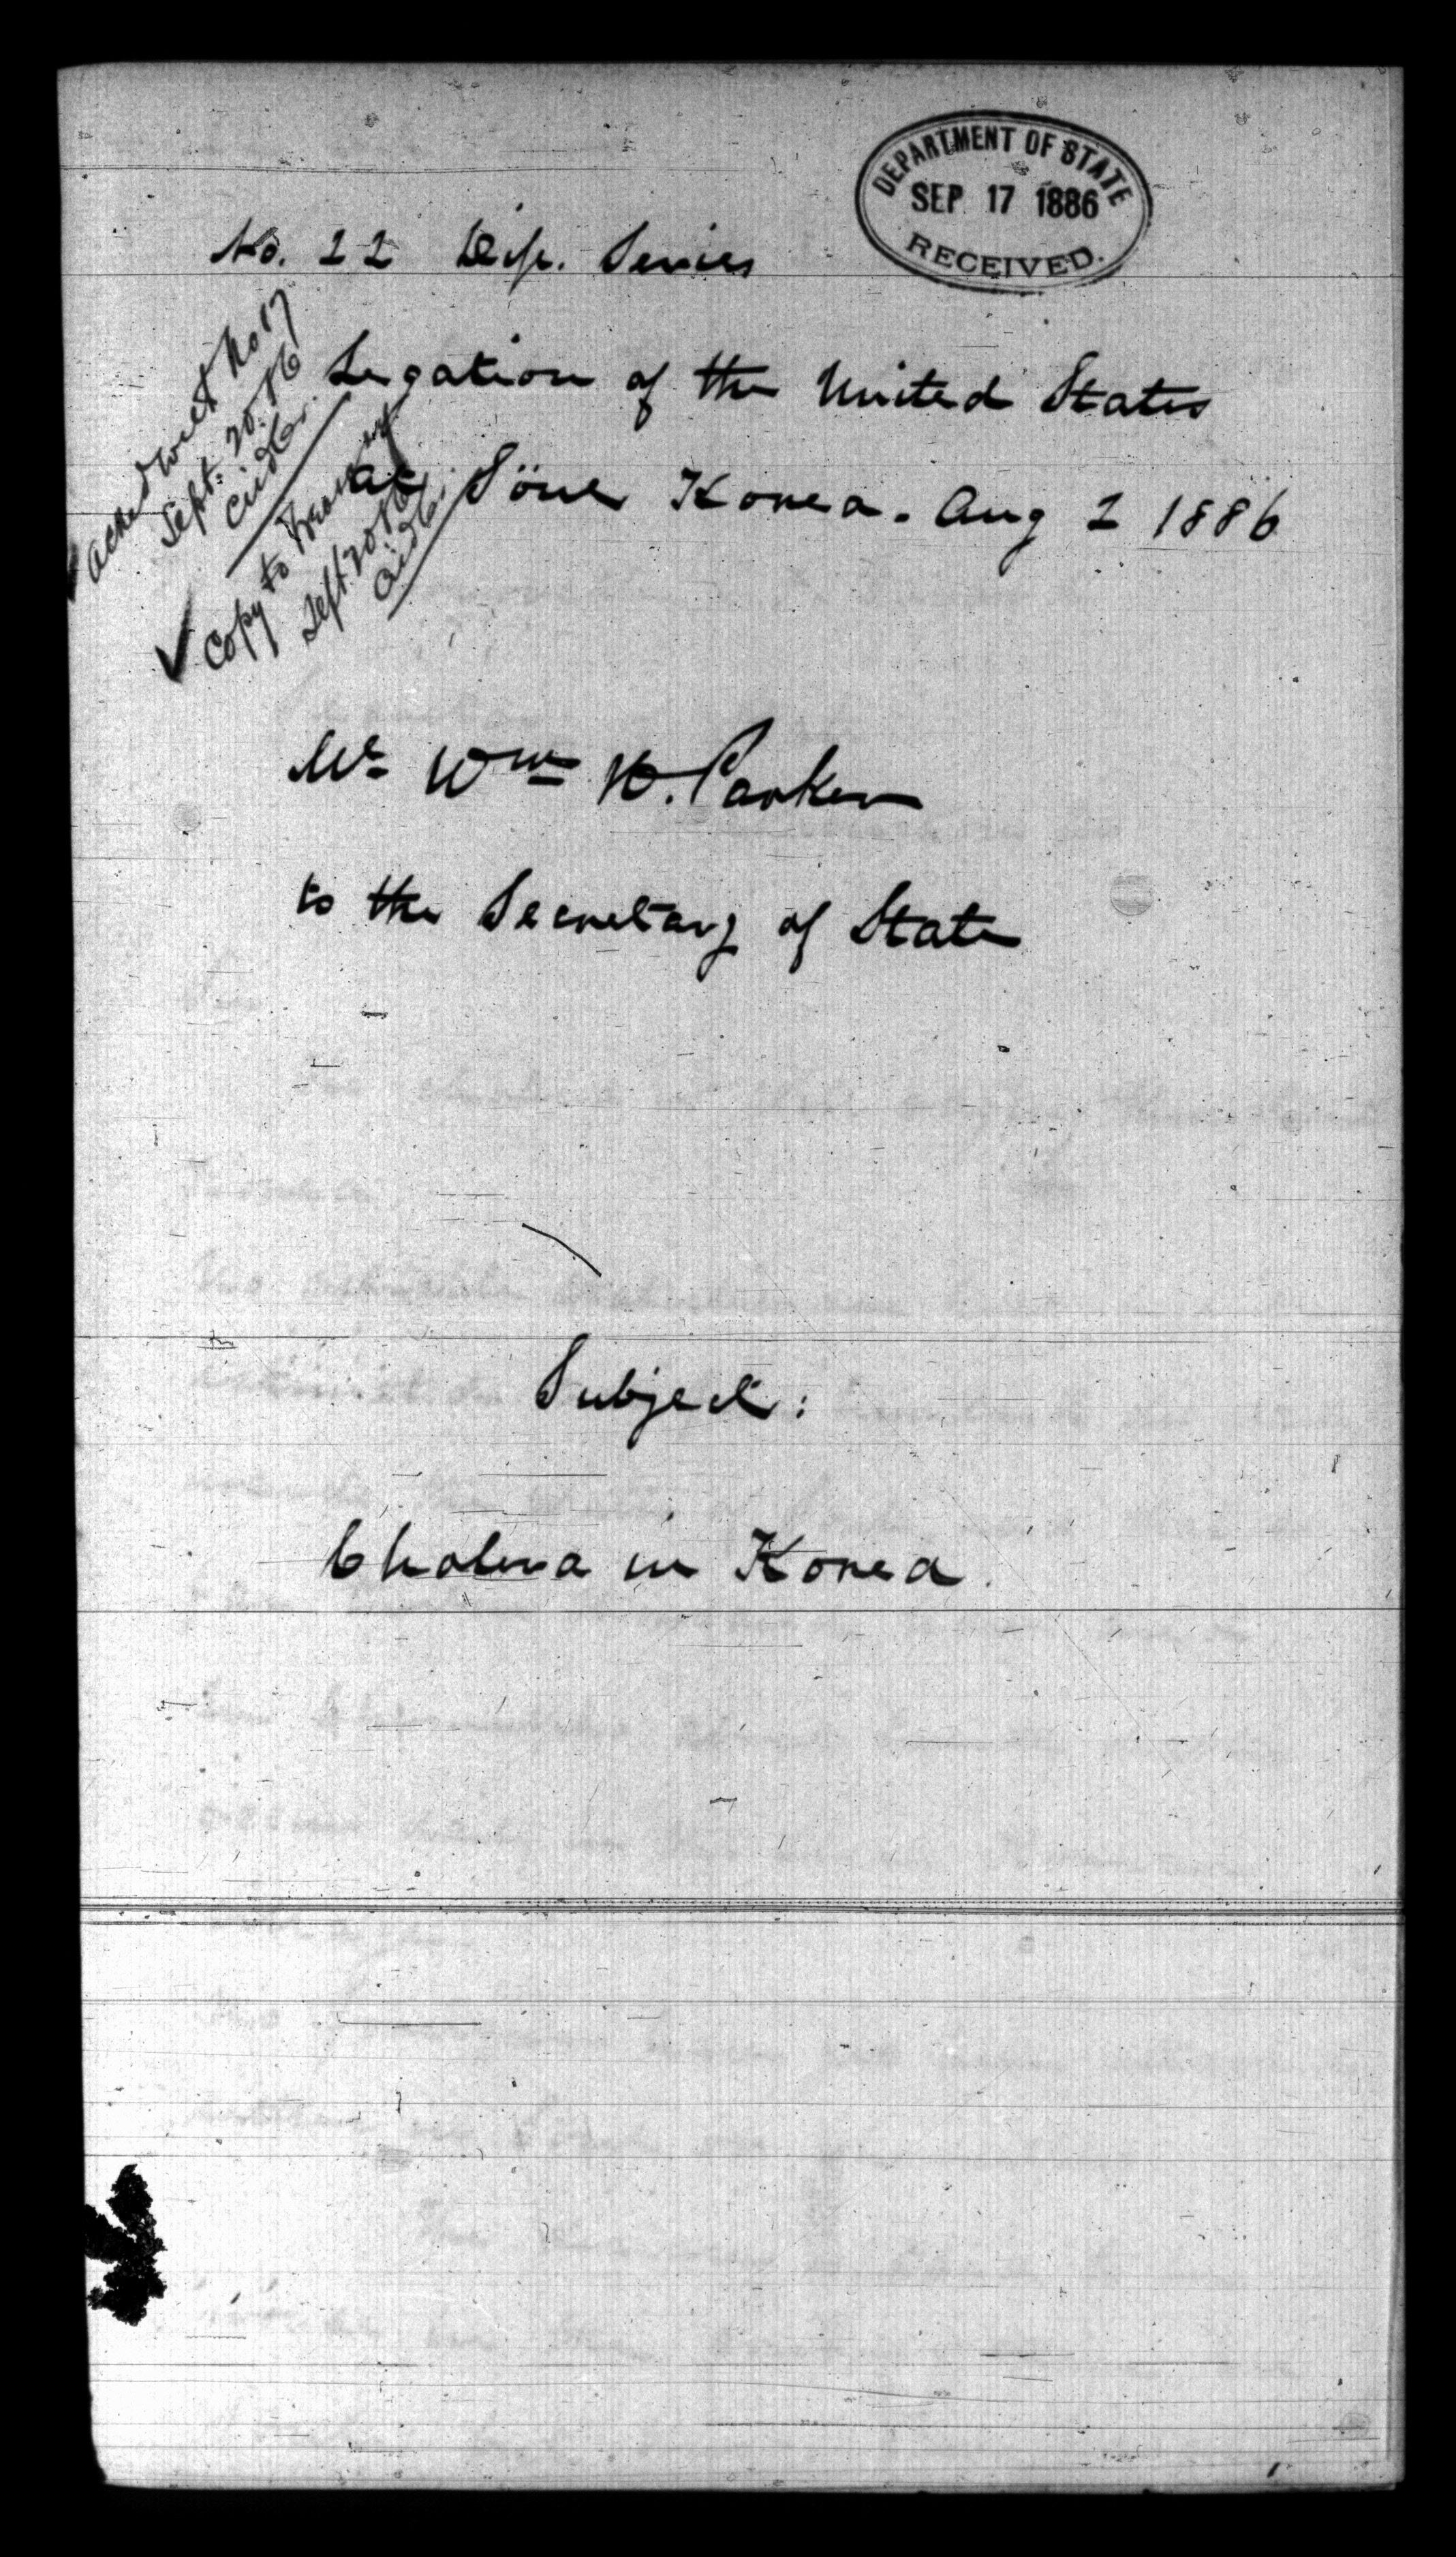 DEPARTMENT OF STATE
SEP 17 1886
RECEIVED.
No. 22 Dip. Series
Legation of the United States
at Söul Korea. Aug 2 1886
Acked Inst No 17
Sept. 20. 86
✓ Copy to Treasury
Sept. 20. 86
Mr Wm H. Parker
to the Secretary of State
Subject:
Cholera in Korea.